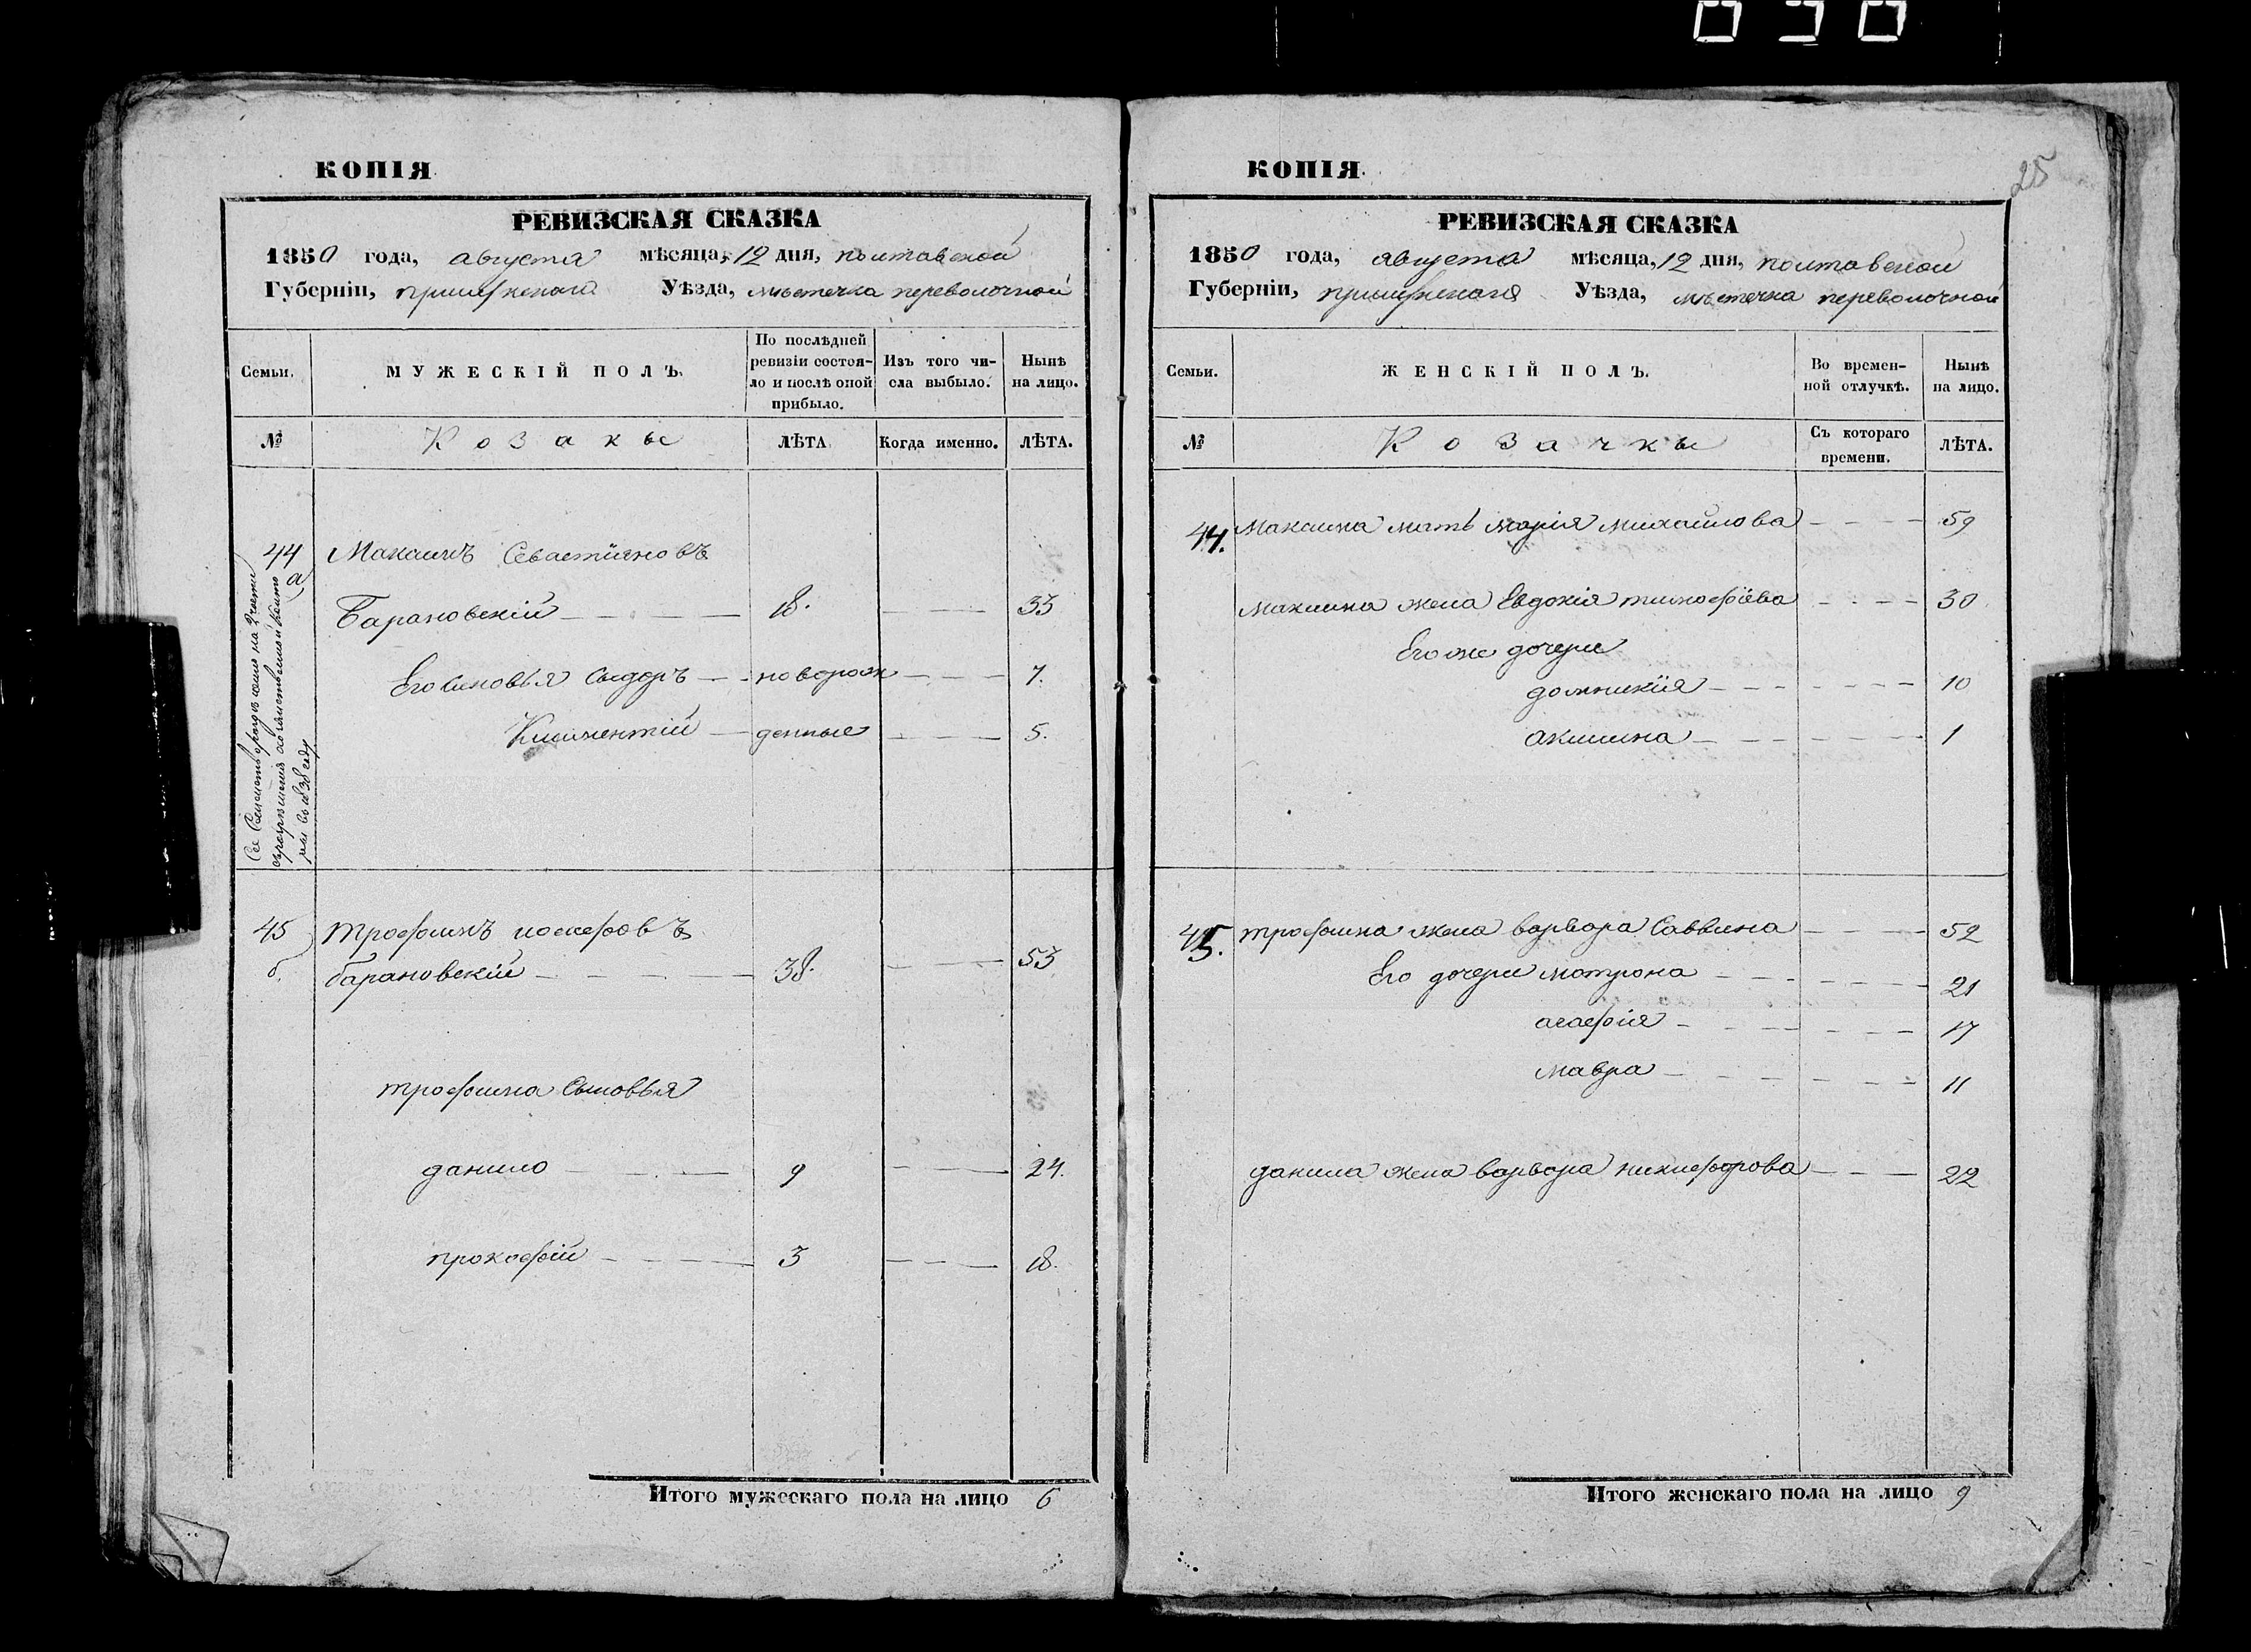 КОПІЯ
РЕВИЗСКАЯ СКАЗКА
1850 года, августа мѣсяца, 12 дня, полтавской
Губерніи, прилукскаго Уѣзда, мѣстечка переволочной
Семьи.
МУЖЕСКІЙ ПОЛЪ.
По послѣдней
ревизіи состоя-
ло и послѣ оной
прибыло.
Изъ того чи-
сла выбыло.
Нынѣ
на лицо.
№
Козакы
ЛѢТА
Когда именно.
ЛѢТА.
44 Максимъ Севастіяновъ
а
Барановскій 18. 33
Его синовья Сыдоръ новорож 7.
Климентій денные 5.
45 трофимъ иосифовъ
б. барановскій 38. 53
трофима Сыновья
данило 9 24.
прокофій 3 18.
Итого мужескаго пола на лицо 6
КОПІЯ.
25
РЕВИЗСКАЯ СКАЗКА
1850 года, августа мѣсяца, 12 дня, полтавской
Губерніи, прилукскаго Уѣзда, мѣстечка переволочной
Семьи.
ЖЕНСКІЙ ПОЛЪ.
Во времен-
ной отлучкѣ.
Нынѣ
на лицо.
№
Козачкы
Съ котораго
времени.
ЛѢТА.
44. Максима мать марія михайлова 59
максима жена Евдокія тимофіева 30
Его же дочери
домникія 10
акилина 1
45. трофима жена варвара Саввина 52
Его дочери мотрона 21
агафія 17
мавра 11
данила жена варвара никифорова 22
Итого женскаго пола на лицо 9